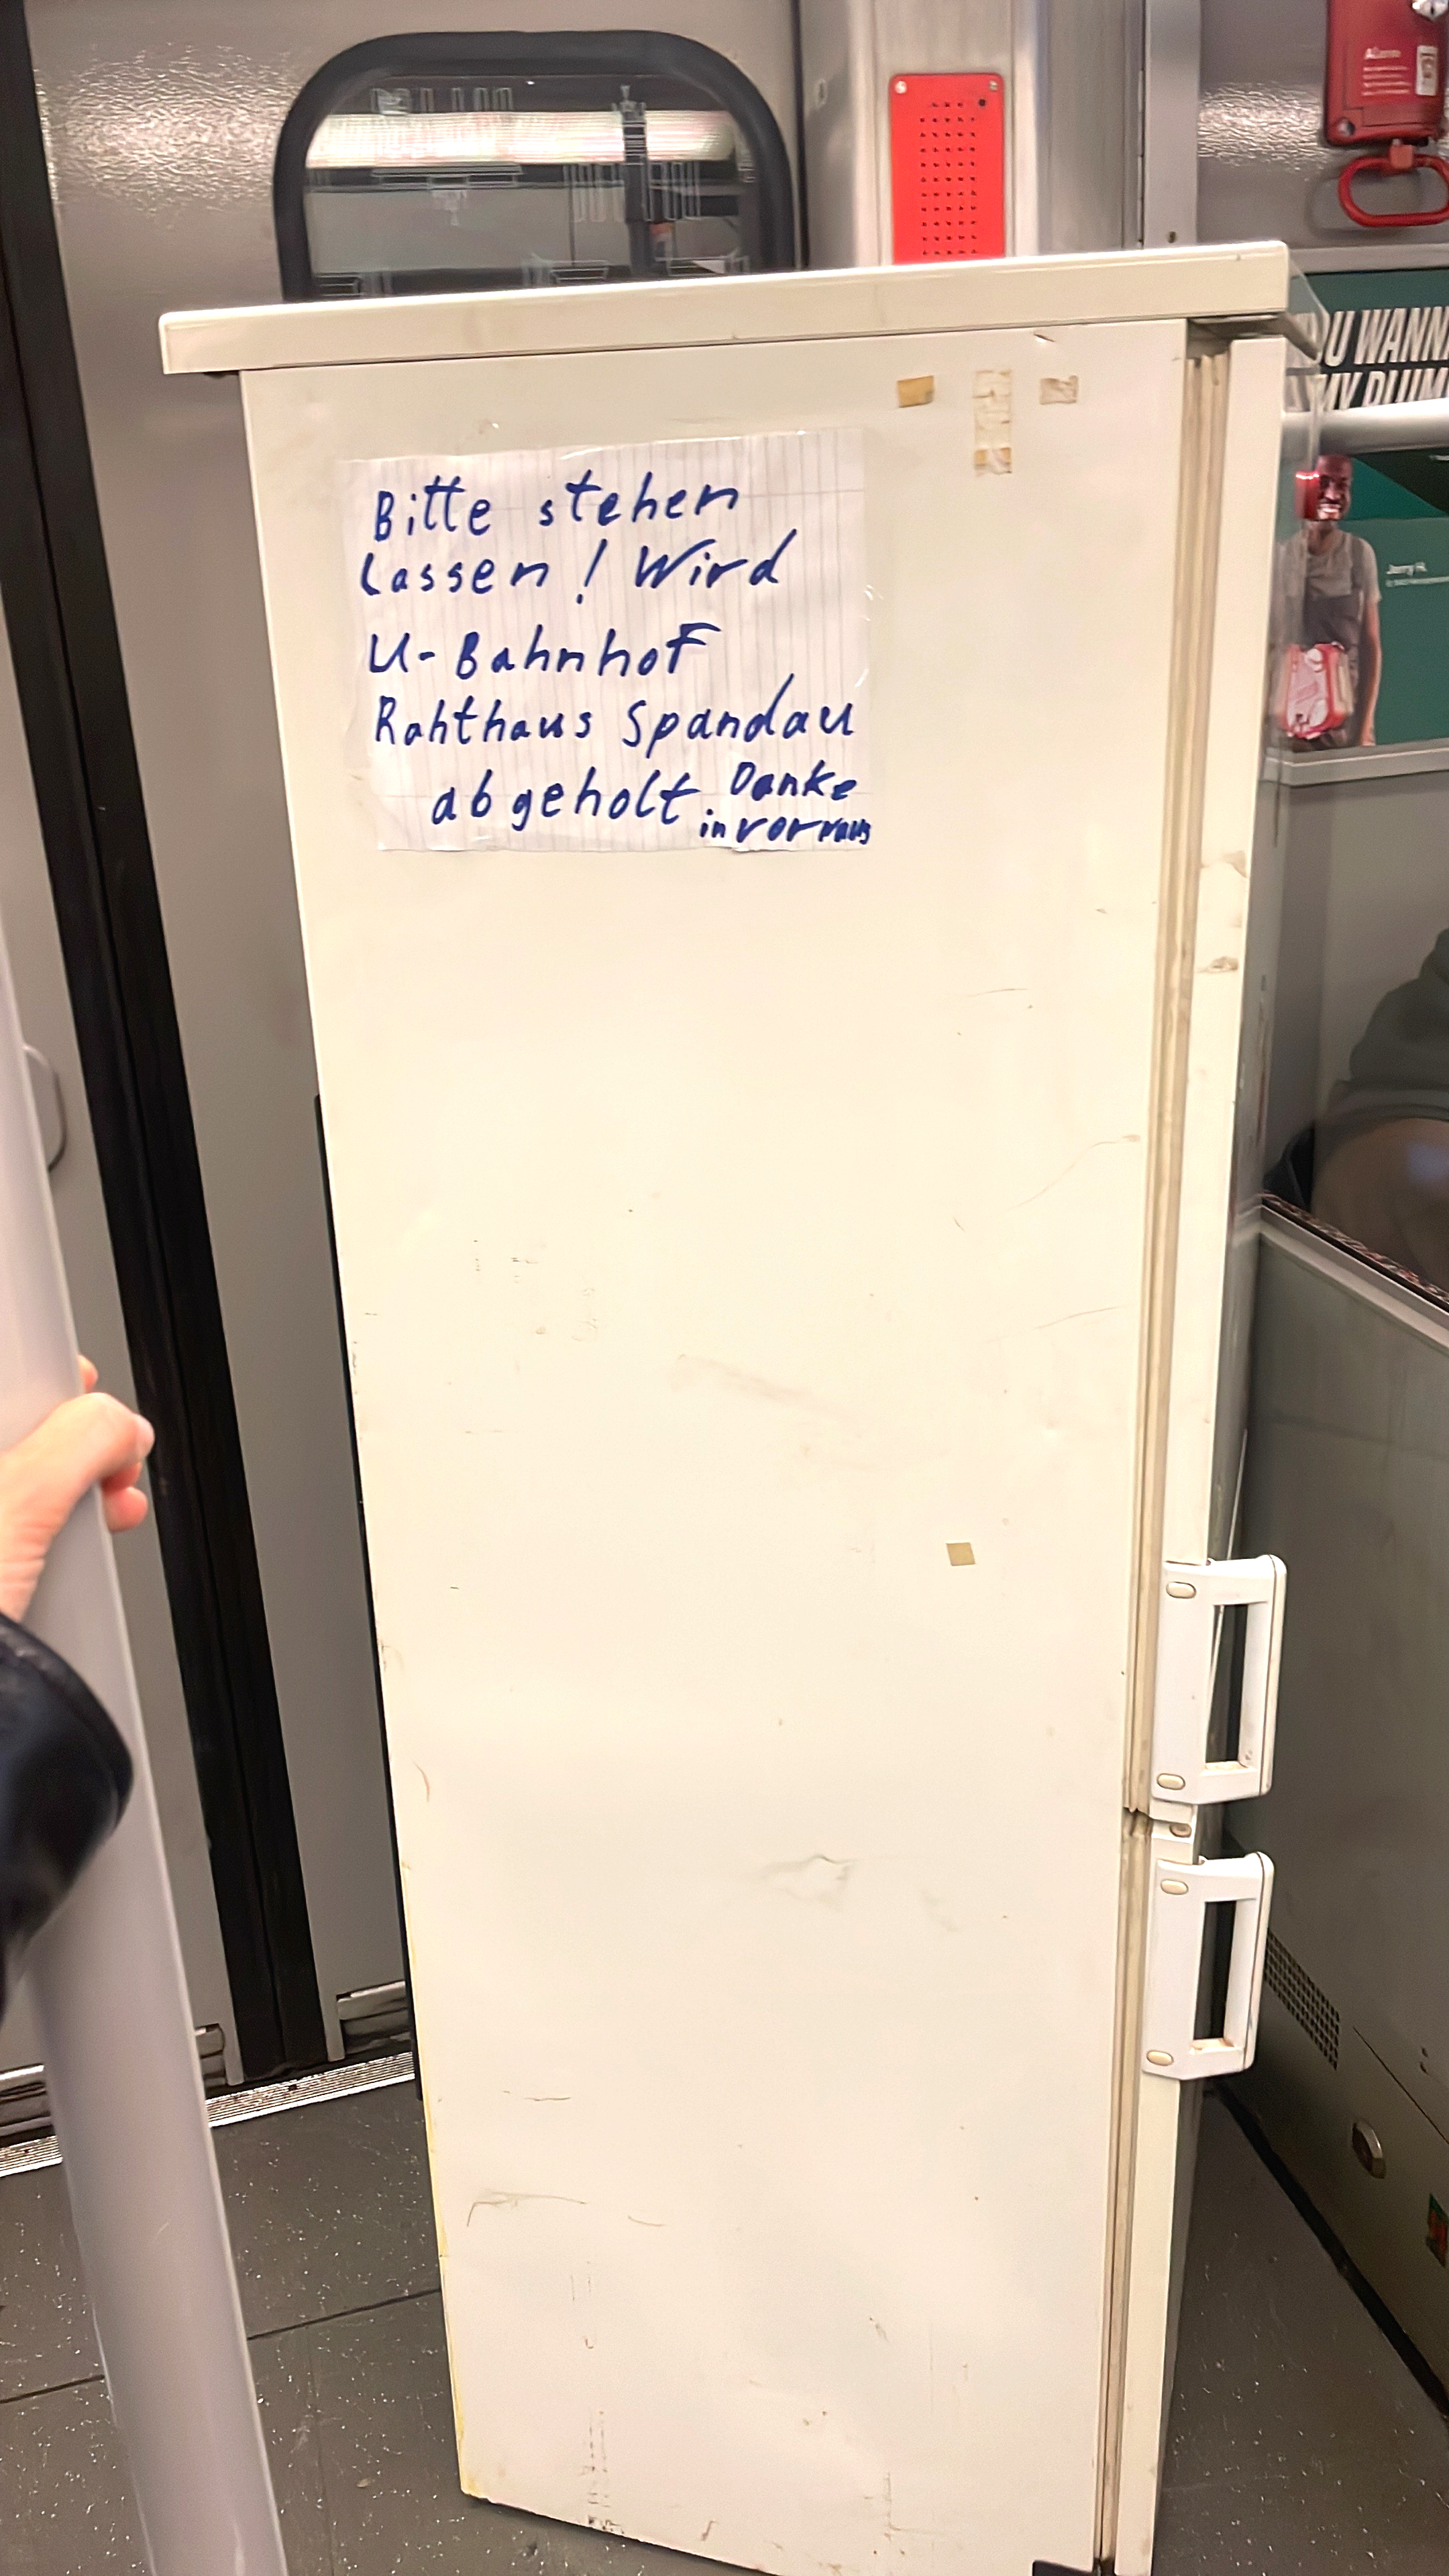 Bitte stehen
Lassen! Wird
U-Bahnhof
Rahthaus Spandau
abgeholt. Danke
in vorraus
Alarm
OU WANN
MY PLUM
Jerry R.